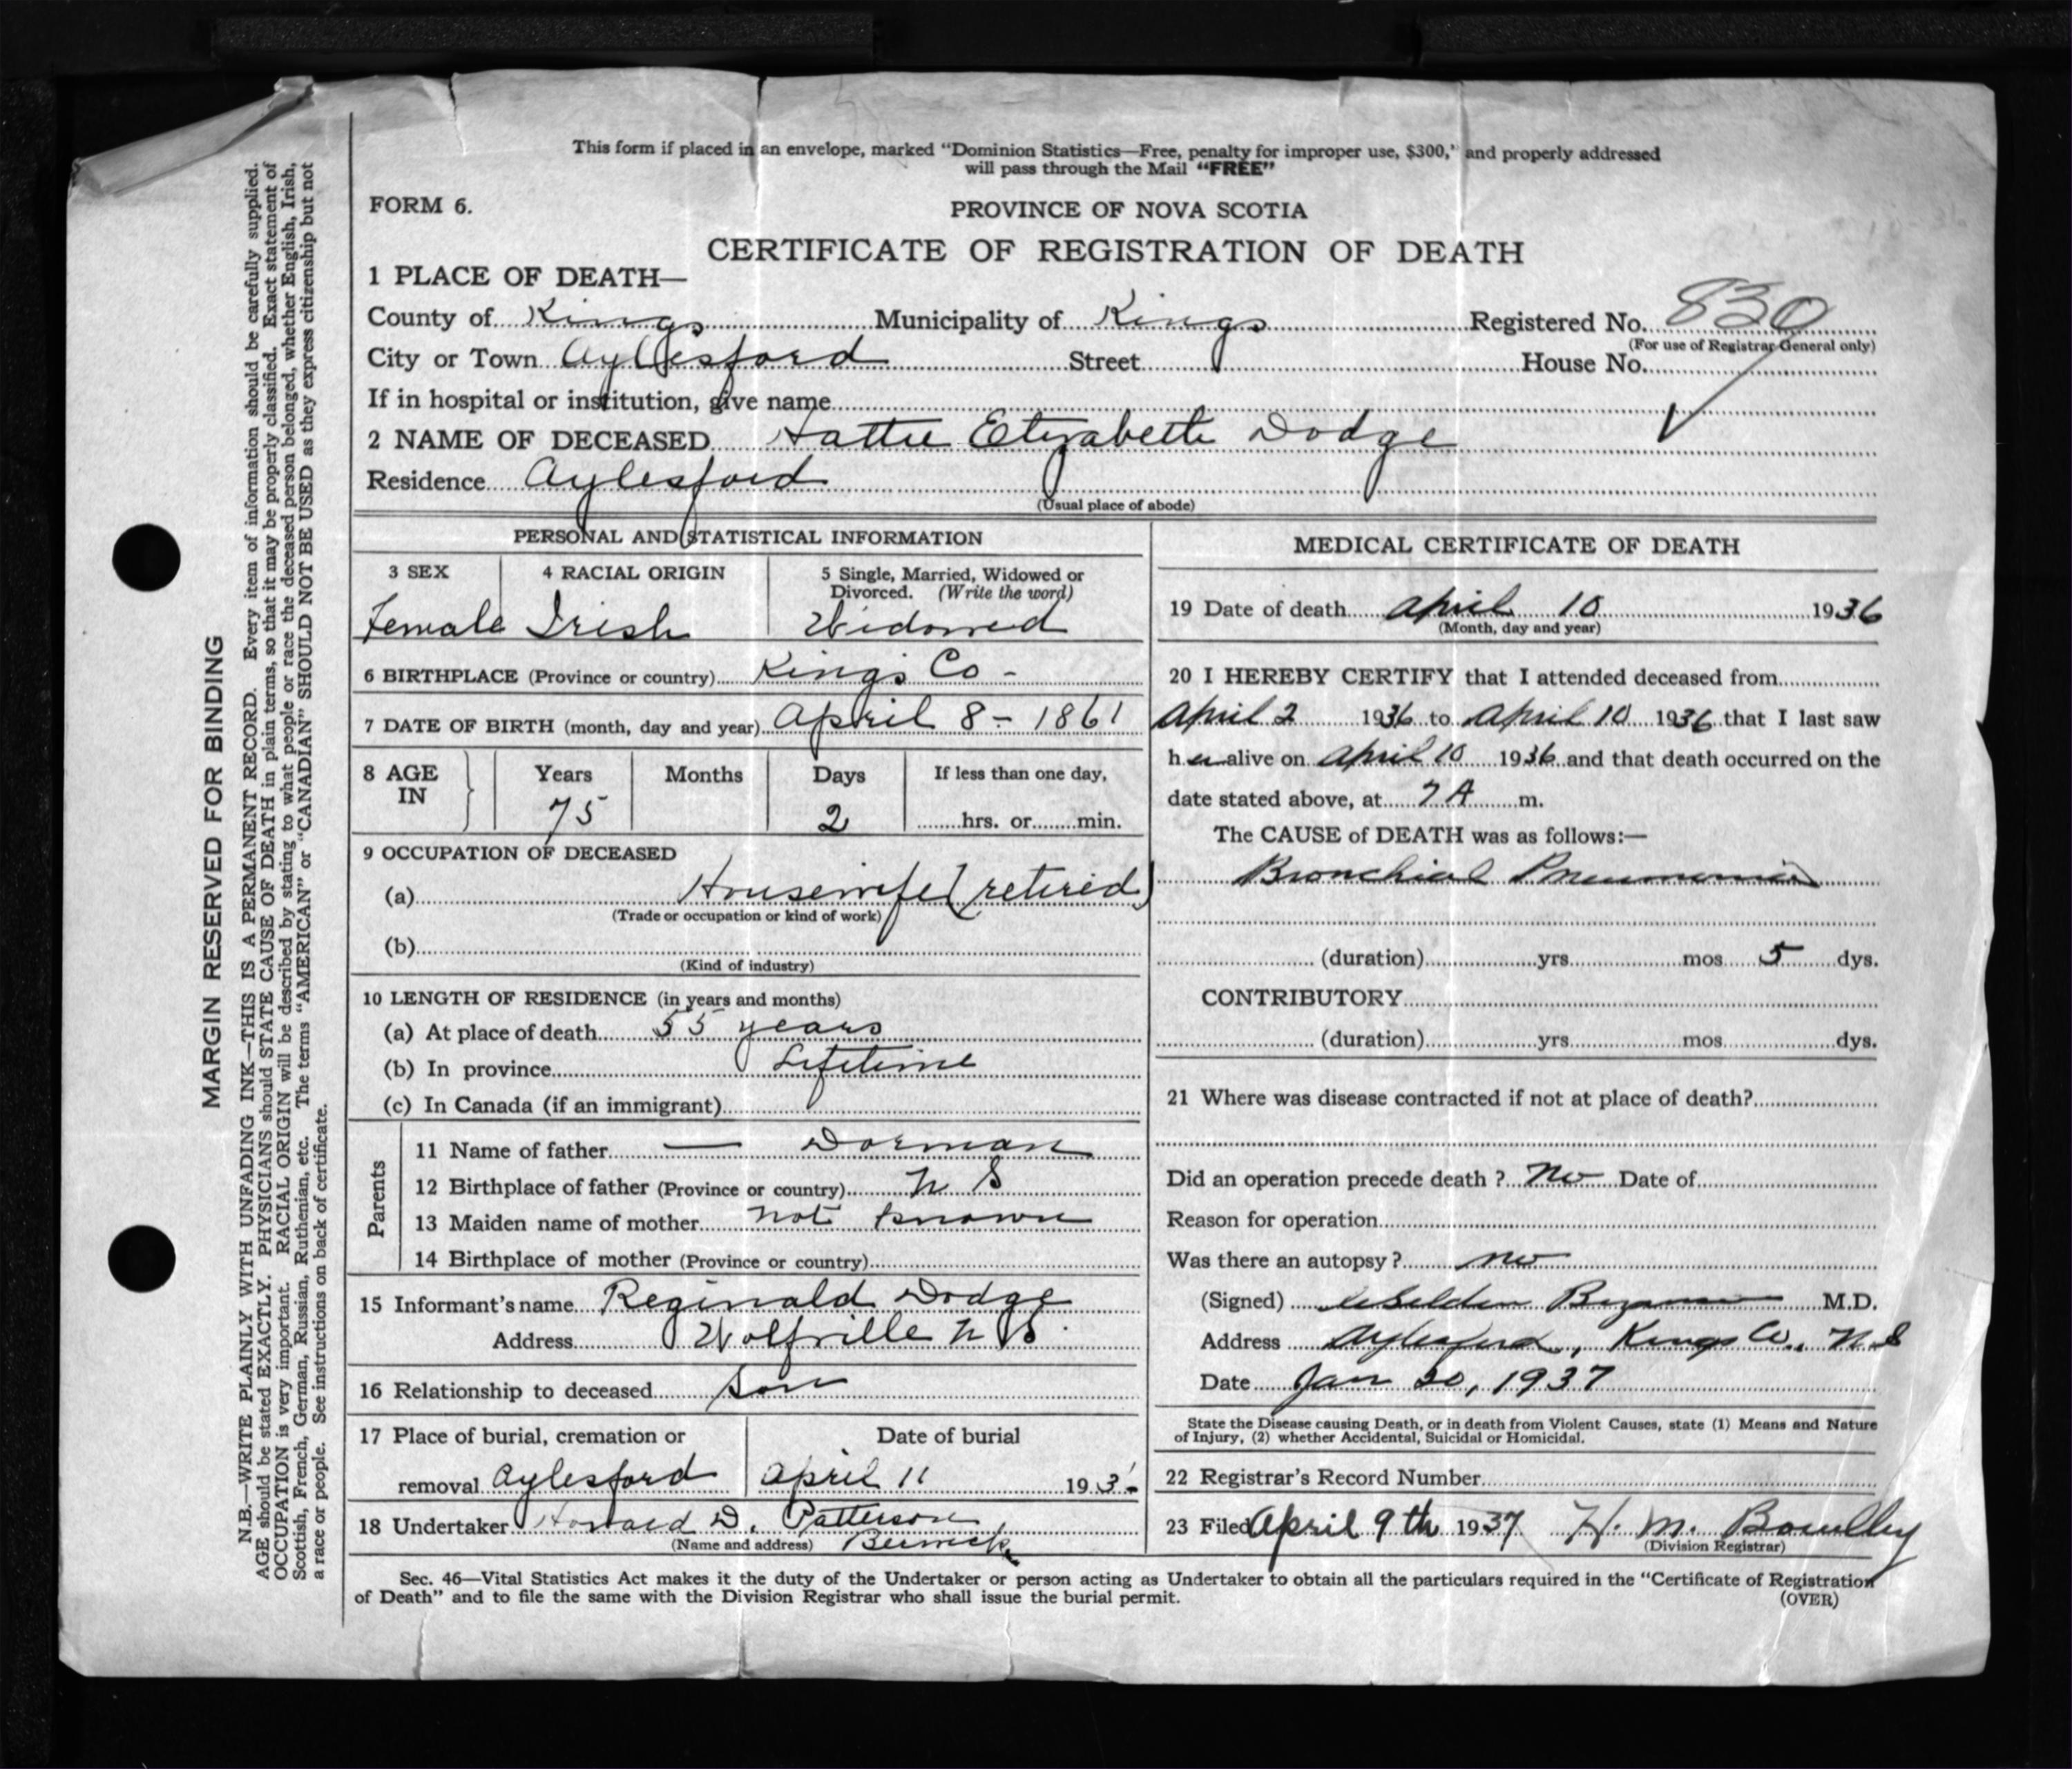 This form if placed in an envelope, marked "Dominion Statistics—Free, penalty for improper use, $300," and properly addressed
will pass through the Mail "FREE"
FORM 6.
PROVINCE OF NOVA SCOTIA
CERTIFICATE OF REGISTRATION OF DEATH
1 PLACE OF DEATH—
County of Kings Municipality of Kings Registered No. 830
(For use of Registrar General only)
City or Town Aylesford Street House No.
If in hospital or institution, give name
2 NAME OF DECEASED Hattie Elizabeth Dodge
Residence Aylesford
(Usual place of abode)
PERSONAL AND STATISTICAL INFORMATION
3 SEX 4 RACIAL ORIGIN 5 Single, Married, Widowed or
Divorced. (Write the word)
Female Irish Widowed
6 BIRTHPLACE (Province or country) Kings Co -
7 DATE OF BIRTH (month, day and year) April 8 - 1861
8 AGE IN Years Months Days If less than one day,
75 2 hrs. or min.
9 OCCUPATION OF DECEASED
(a) Housewife (retired)
(Trade or occupation or kind of work)
(b)
(Kind of industry)
10 LENGTH OF RESIDENCE (in years and months)
(a) At place of death 55 years
(b) In province Lifetime
(c) In Canada (if an immigrant)
Parents
11 Name of father — Dorman
12 Birthplace of father (Province or country) N S
13 Maiden name of mother not known
14 Birthplace of mother (Province or country)
15 Informant's name Reginald Dodge
Address Wolfville N S.
16 Relationship to deceased Son
17 Place of burial, cremation or Date of burial
removal Aylesford April 11 193
18 Undertaker Howard D. Patterson
(Name and address) Berwick
MEDICAL CERTIFICATE OF DEATH
19 Date of death April 10 1936
(Month, day and year)
20 I HEREBY CERTIFY that I attended deceased from
April 2 1936 to April 10 1936 that I last saw
her alive on April 10 1936 and that death occurred on the
date stated above, at 7 A m.
The CAUSE of DEATH was as follows:—
Bronchial Pneumonia
(duration) yrs. mos 5 dys.
CONTRIBUTORY
(duration) yrs. mos. dys.
21 Where was disease contracted if not at place of death?
Did an operation precede death? No Date of
Reason for operation
Was there an autopsy? no
(Signed) M.D.
Address Aylesford, Kings Co., N.S
Date Jan 20, 1937
State the Disease causing Death, or in death from Violent Causes, state (1) Means and Nature
of Injury, (2) whether Accidental, Suicidal or Homicidal.
22 Registrar's Record Number
23 Filed April 9th 1937 H. M.
(Division Registrar)
Sec. 46—Vital Statistics Act makes it the duty of the Undertaker or person acting as Undertaker to obtain all the particulars required in the "Certificate of Registration
of Death" and to file the same with the Division Registrar who shall issue the burial permit.
(OVER)
MARGIN RESERVED FOR BINDING
N.B.—WRITE PLAINLY WITH UNFADING INK—THIS IS A PERMANENT RECORD. Every item of information should be carefully supplied.
AGE should be stated EXACTLY. PHYSICIANS should STATE CAUSE OF DEATH in plain terms, so that it may be properly classified. Exact statement of
OCCUPATION is very important. RACIAL ORIGIN will be described by stating to what people or race the deceased person belonged, whether English, Irish,
Scottish, French, German, Russian, Ruthenian, etc. The terms "AMERICAN" or "CANADIAN" SHOULD NOT BE USED as they express citizenship but not
a race or people. See instructions on back of certificate.